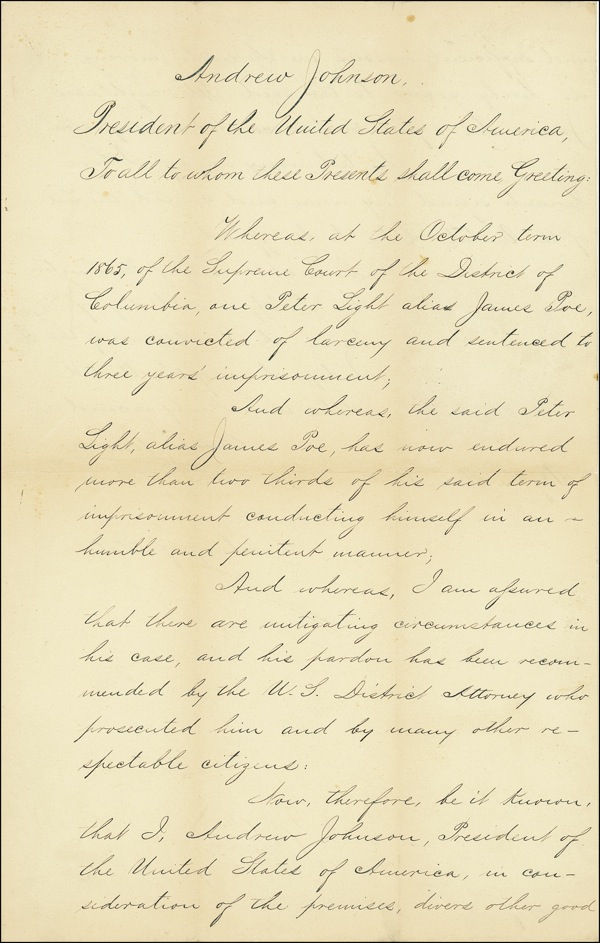 Andrew Johnson,
President of the United States of America,
To all to whom these Presents shall come, Greeting:
Whereas, at the October term
1865, of the Supreme Court of the District of
Columbia, one Peter Light alias James Poe,
was convicted of larceny and sentenced to
three years' imprisonment;
And whereas, the said Peter
Light, alias James Poe, has now endured
more than two thirds of his said term of
imprisonment conducting himself in an -
humble and penitent manner;
And whereas, I am assured
that there are mitigating circumstances in
his case, and his pardon has been recom-
mended by the U. S. District Attorney who
prosecuted him and by many other re-
spectable citizens:
Now, therefore, be it known,
that I, Andrew Johnson, President of
the United States of America, in con-
sideration of the premises, divers other good